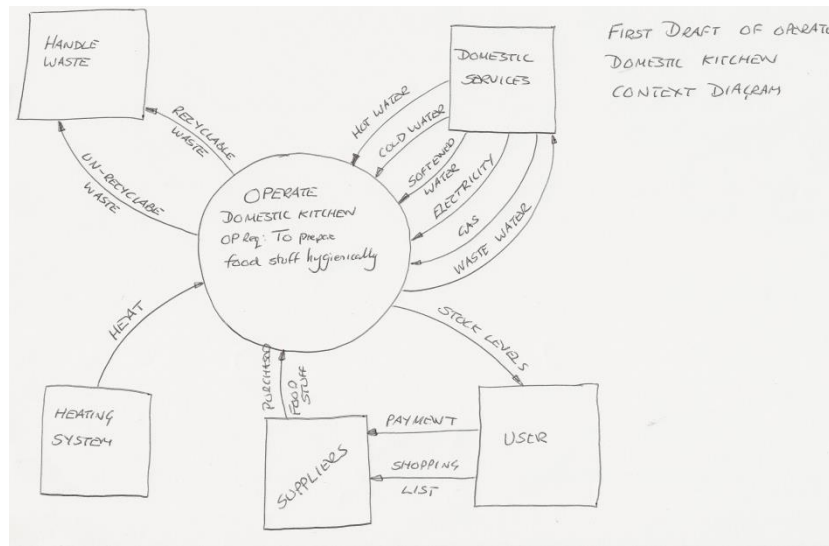 FIRST DRAFT OF OPERATE
DOMESTIC KITCHEN
CONTEXT DIAGRAM
HANDLE
WASTE
DOMESTIC
SERVICES
RECYCLABLE
WASTE
UN-RECYCLABE
WASTE
HOT WATER
COLD WATER
SOFTENED
WATER
ELECTRICITY
GAS
WASTE WATER
OPERATE
DOMESTIC KITCHEN
OP Req: To prepare
food stuff hygienically
HEAT
STOCK LEVELS
PURCHASED
FOOD
STUFF
HEATING
SYSTEM
SUPPLIERS
PAYMENT
SHOPPING
LIST
USER